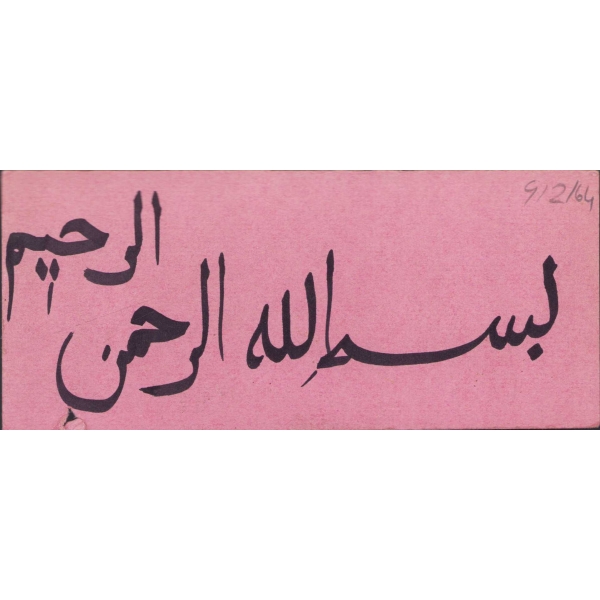 9/2/64
بسم الله الرحمن
الرحيم